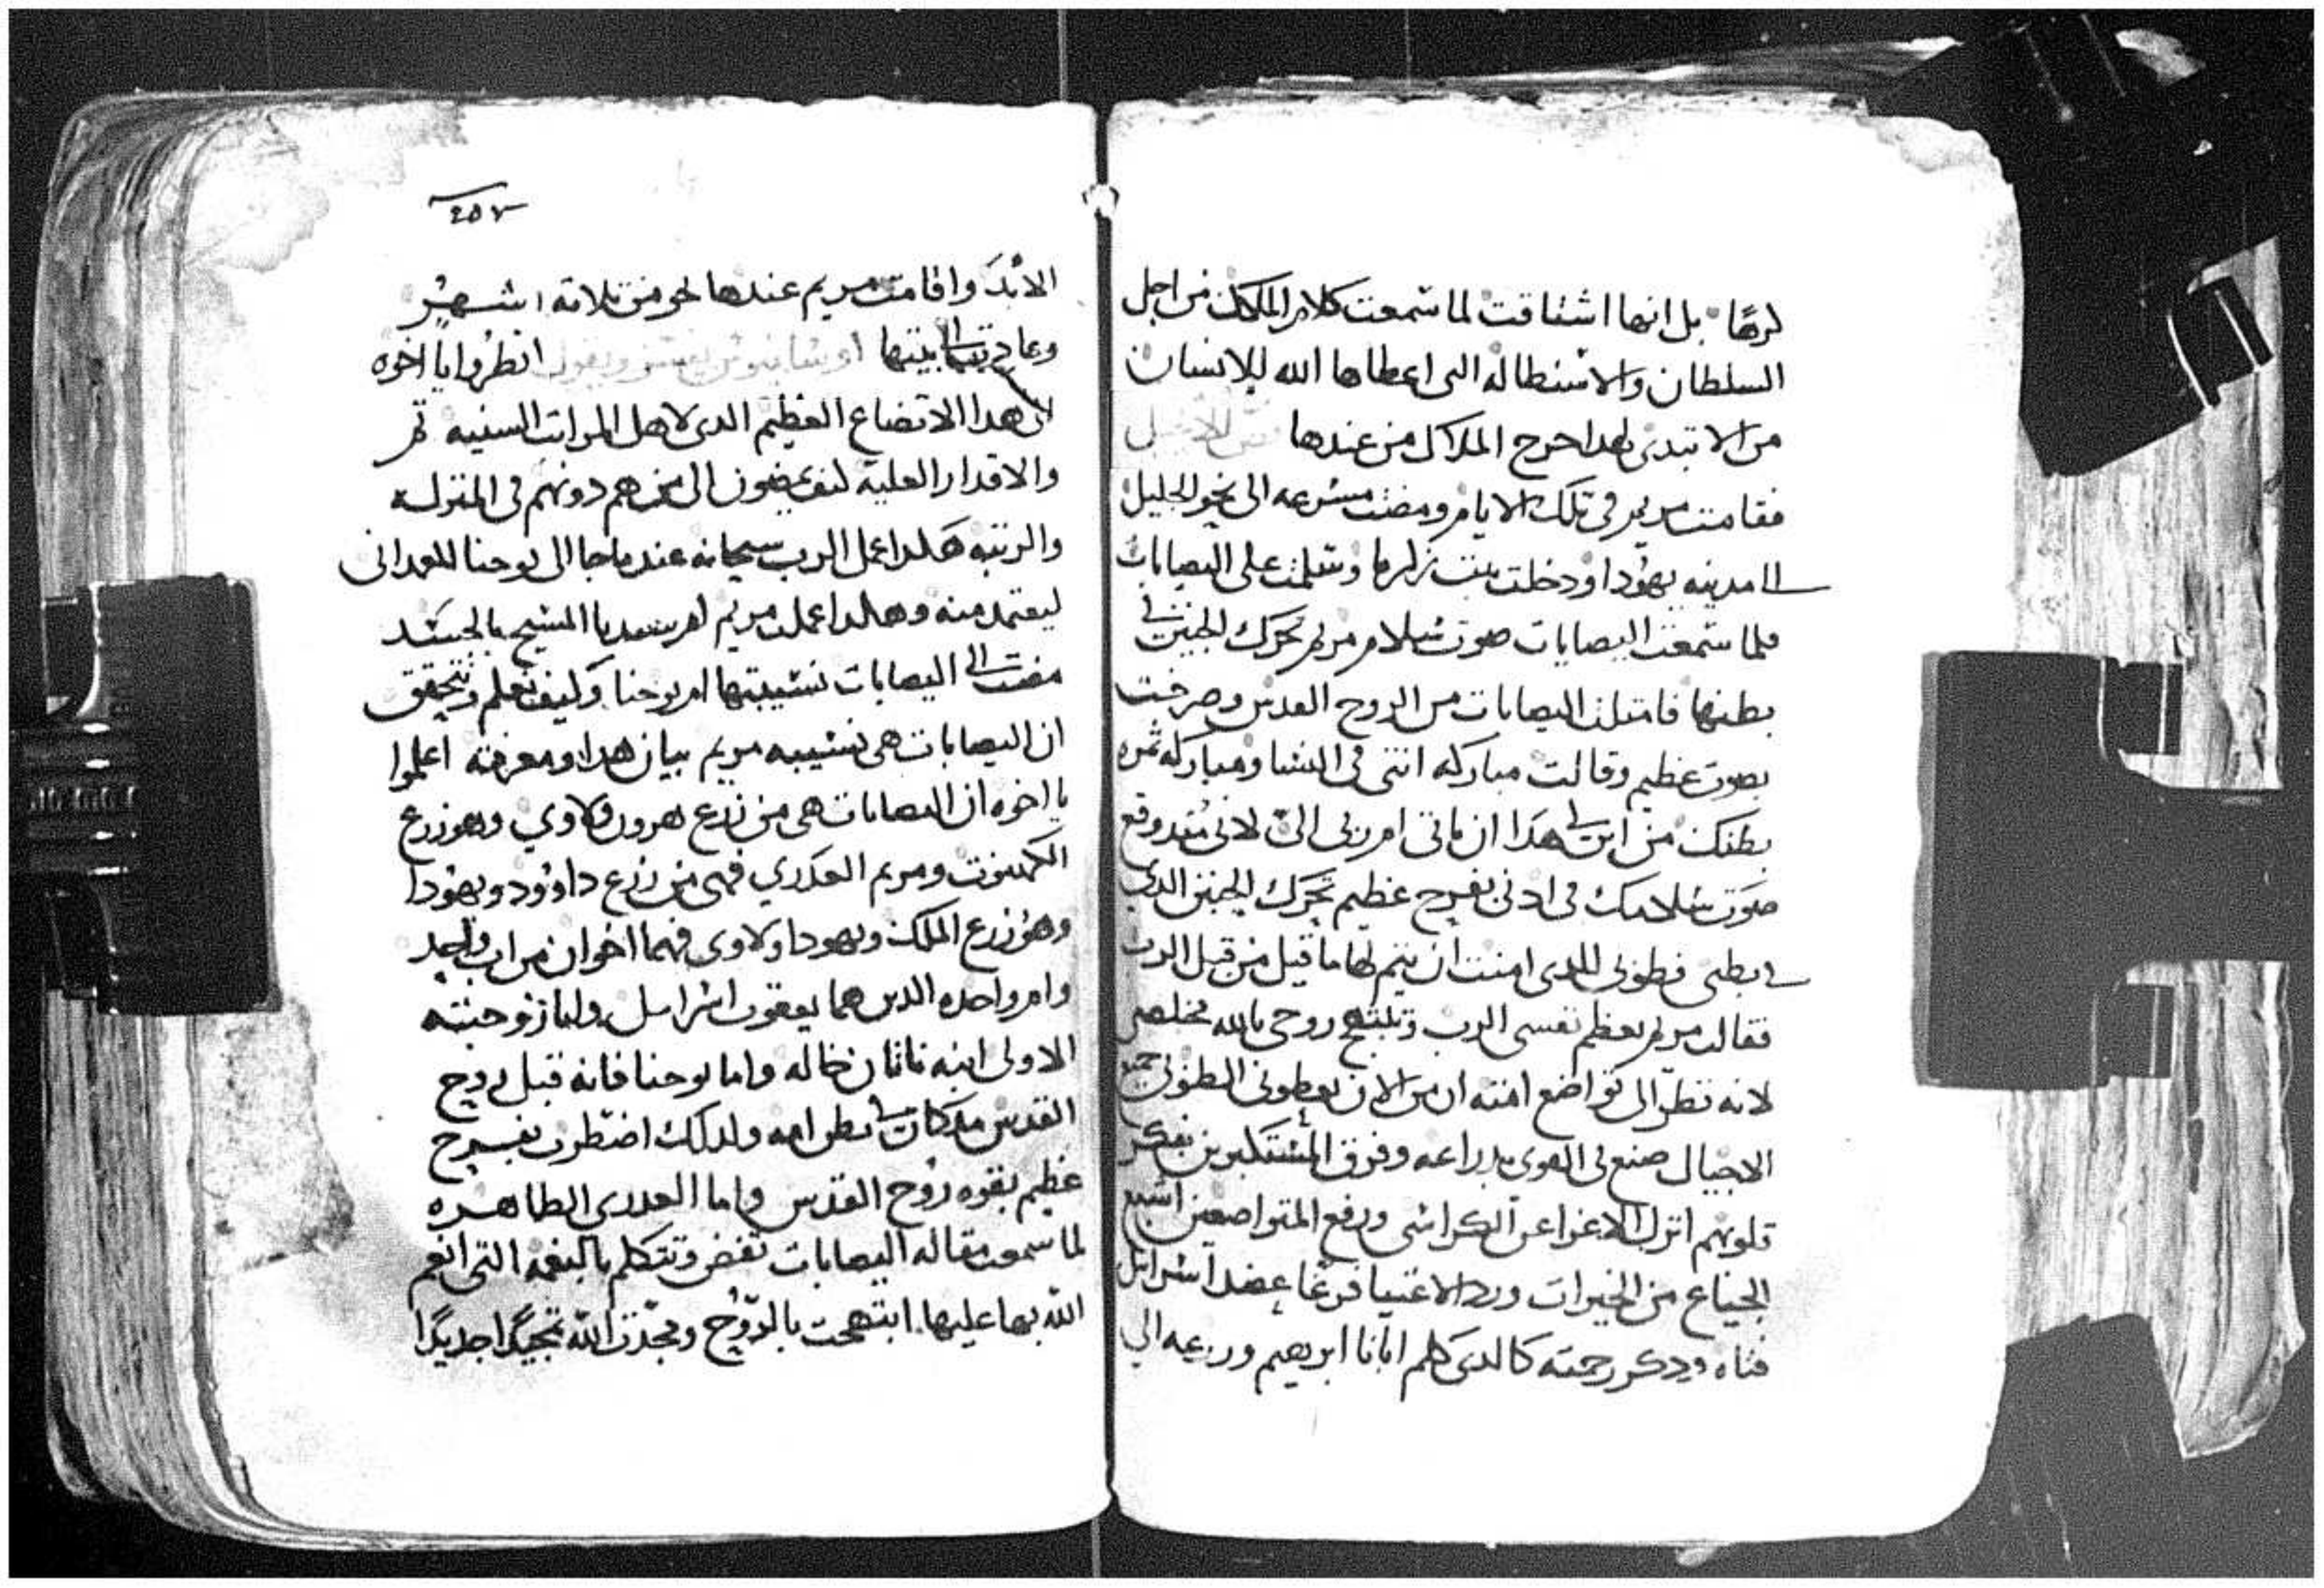 كرهًا بل انها اشتاقت لما سمعت كلام الملاك من اجل
السلطان والاستطاله التى اعطاها الله للانسان
من الابتدى بهدا خرج الملاك من عندها نص الانجيل
فقامت مريم فى تلك الايام ومضت مسرعه الى نحو الجليل
الى مدينه يهودا ودخلت بيت زكريا وسلمت على اليصابات
فلما سمعت اليصابات صوت سلام مريم تحرك الجنين فى
بطنها فامتلت اليصابات من الروح القدس وصرخت
بصوت عظيم وقالت مباركه انتى فى النسا ومباركه ثمره
بطنك من اين لى هدا ان تاتى ام ربى الىّ لانى مند وقع
صوت سلامك فى ادنى بفرح عظيم تحرك الجنين الدى
فى بطنى فطوبى للدى امنت ان يتم لها ما قيل من قبل الرب
فقالت مريم تعظم نفسى الرب وتبتهج روحى بالله مخلصى
لانه نظر الى تواضع امته ان من الان يعطونى الطوبى جميع
الاجيال صنع لى القوى بدراعه وفرق المستكبرين بفكر
قلوبهم انزل الاعزا عن الكراسى ورفع المتواضعين اشبع
الجياع من الخيرات ورد الاغنيا فرغا عضد اسرايل
فتاه ودكر رحمته كالدى كلم ابانا ابرهيم وزرعه الى
٢٥٧
الابد واقامت مريم عندها نحو من تلاته اشهر
وعادت الى بيتها ويقول انظروا يا اخوه
الى هدا الاتضاع العظيم الدى لاهل المراتب السنيه
والاقدار العليه الى من هم دونهم فى المنزله
والرتبه هكدا عمل الرب سبحانه عندما جا الى يوحنا المعمدانى
ليعتمد منه وهكدا عملت مريم ام سيدنا المسيح بالجسد
مضت الى اليصابات نسيبتها ام يوحنا وكيف نعلم ونتحقق
ان اليصابات هى نسيبه مريم بيان هدا ومعرفته اعلموا
يا اخوه ان اليصابات هى من زرع هرون ولاوي وهو زرع
الكهنوت ومريم العدري فهى من زرع داوود ويهودا
وهو زرع الملك ويهودا ولاوى فهما اخوان من اب واحد
وام واحده الدين هما يعقوب اسراييل وليا زوجته
الاولى ابنه لابان خاله واما يوحنا فانه قبل روح
القدس مد كان فى بطن امه ولدلك اضطرب بفرح
عظيم بقوه روح القدس واما العدرى الطاهره
لما سمعت مقاله اليصابات تفض وتتكلم بالنعمه التى انعم
الله بها عليها ابتهجت بالروح ومجدت الله تمجيدًا جديدًا